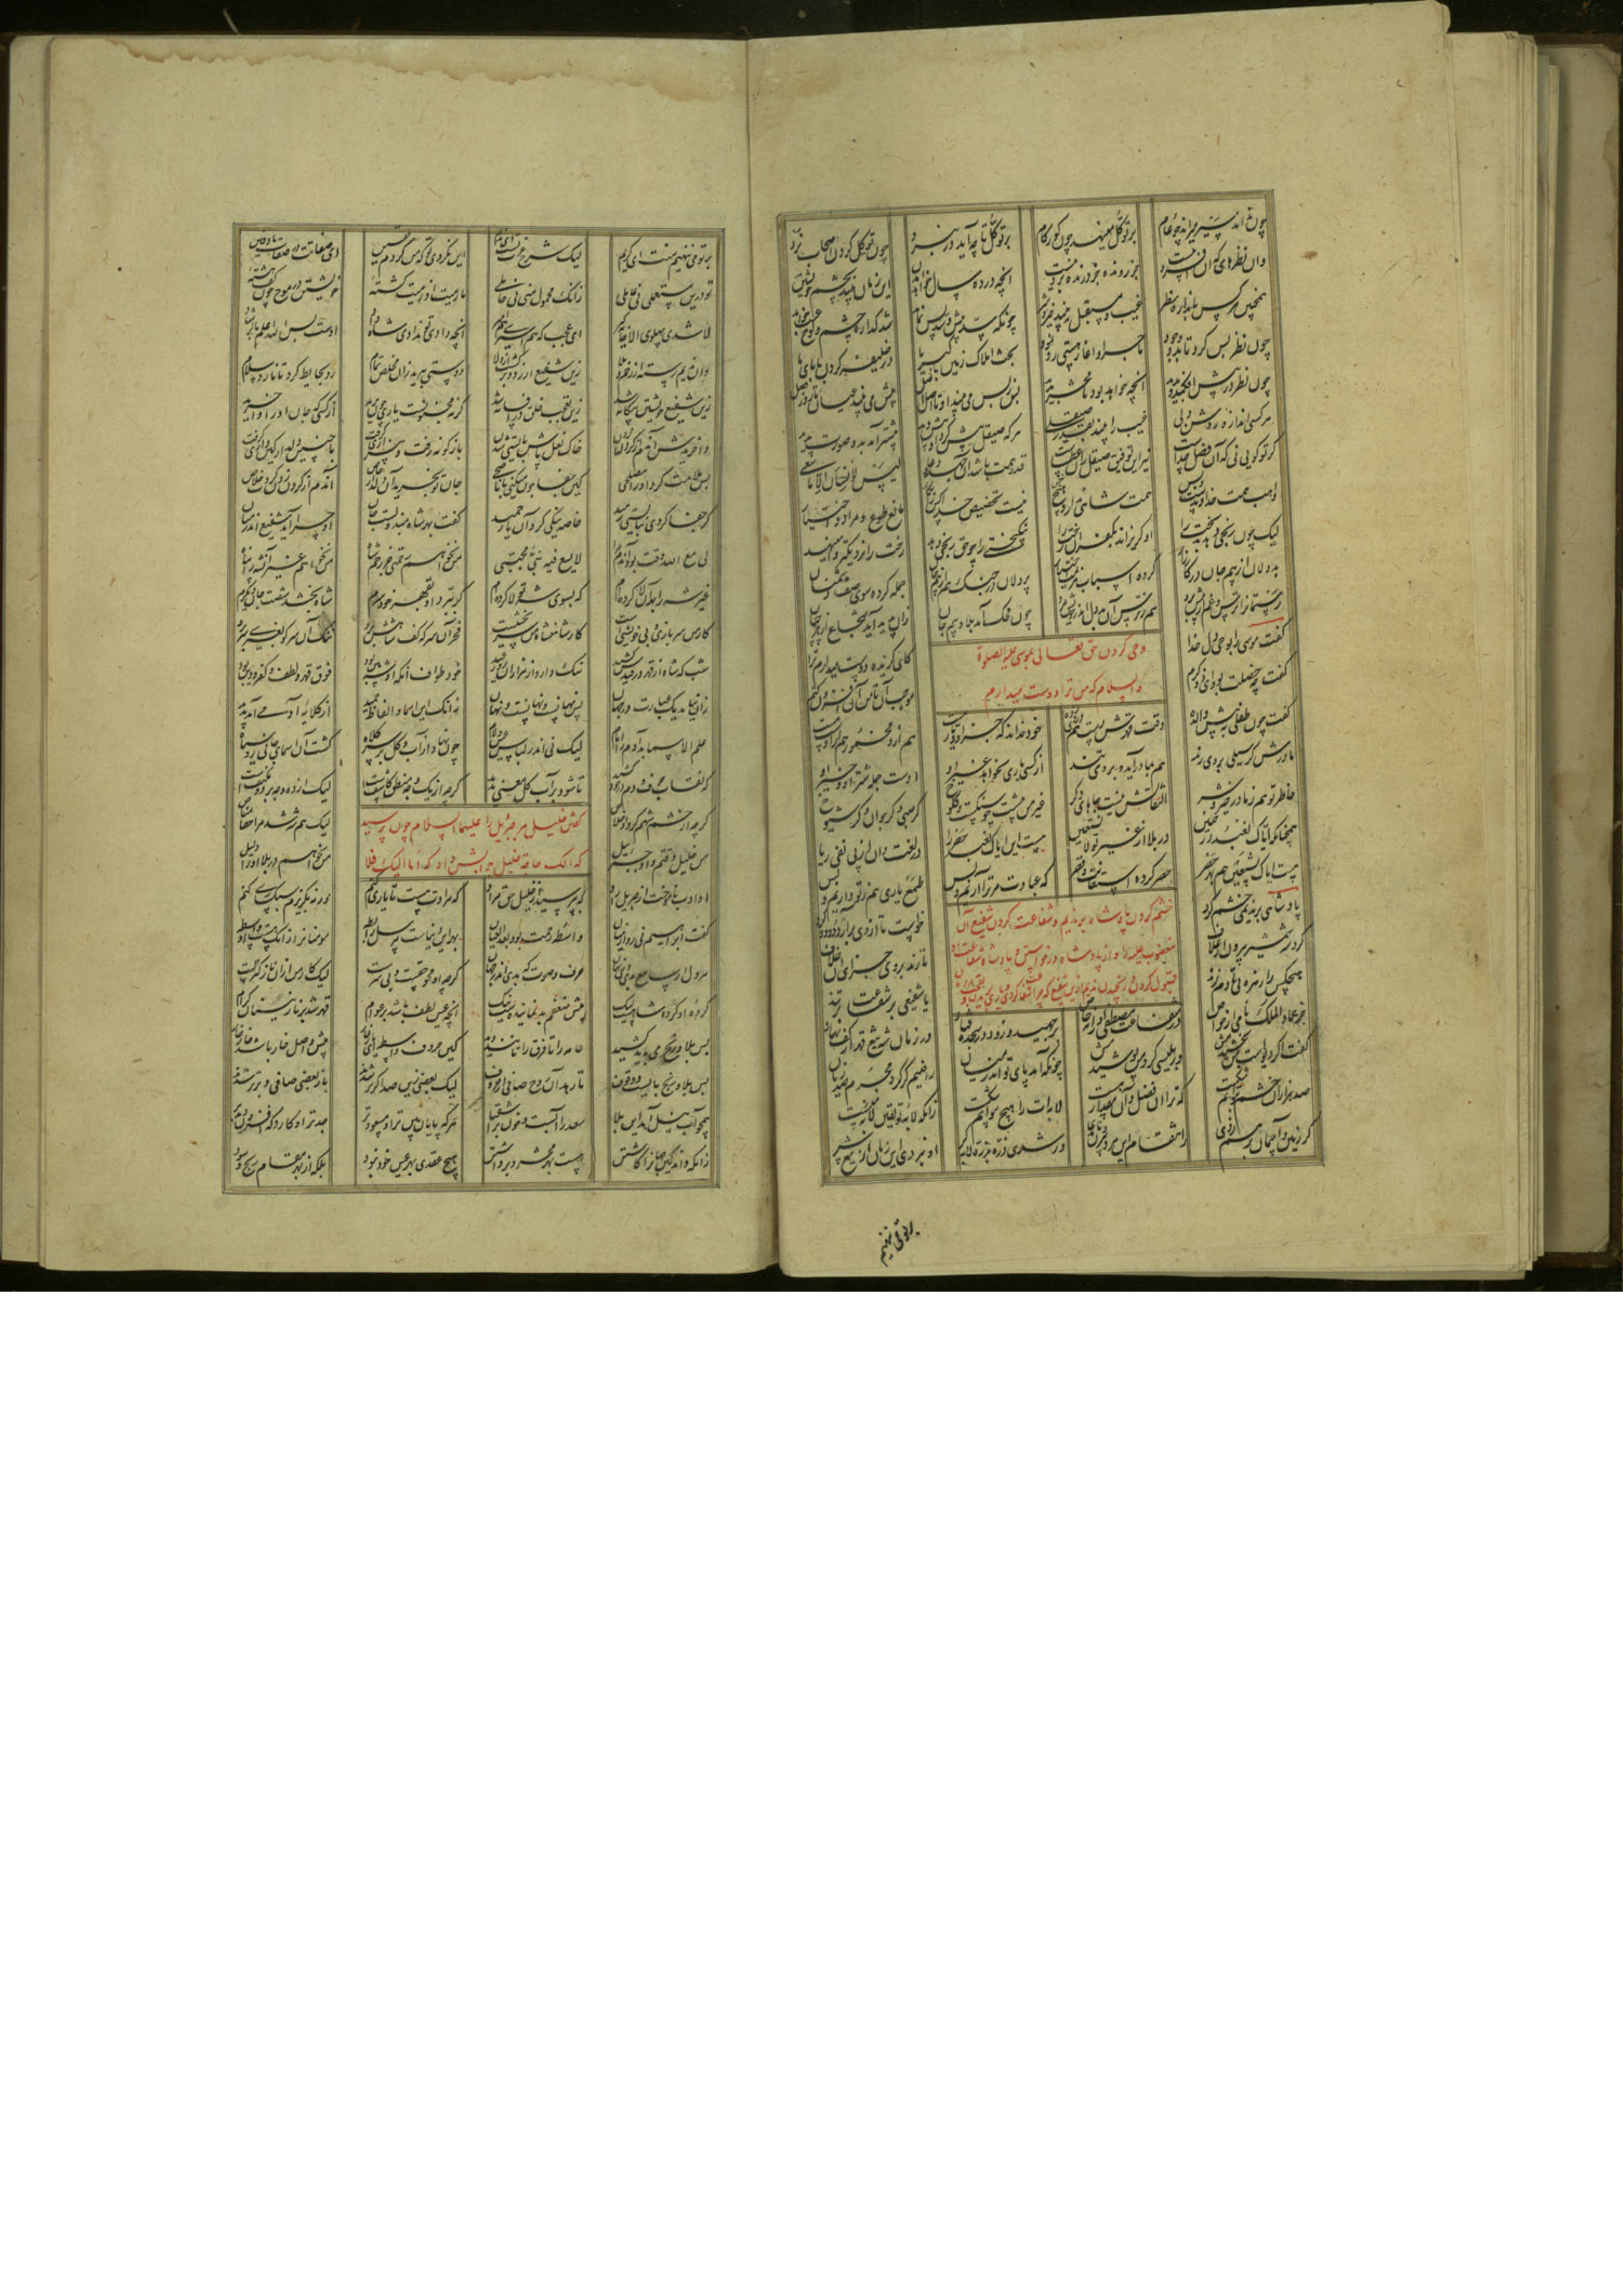 چون نه اند سیر میراند چو عام بر توکل می نهد چون کور گام بر توکل تا چه آید در نبرد چون توکل کردن اصحاب نرد
وان نظرهای که آن افسرده نیست جز رونده و جز درنده پرده نیست آنچه در ده سال خواهد آمدن این زمان بیند بچشم خویشتن
همچنین هر کس باندازه نظر غیب و مستقبل ببیند خیر و شر چونکه سد پیش و سد پس نماند شد گذاره چشم و لوح غیب خواند
چون نظر پس کرد تا بدو وجود ماجرا و آغاز هستی رو نمود بحث املاک زمین با کبریا در خلیفه کردن بابای ما
چون نظر در پیش افکند او بدید آنچه خواهد بود تا محشر پدید پس ز پس می بیند او تا اصل اصل پیش می بیند عیان تا روز فصل
هر کسی اندازه روشن دلی غیب را بیند بقدر صیقلی هر که صیقل بیش کرد او بیش دید بیشتر آمد برو صورت پدید
گر تو گویی که آن فضل خداست نیز این توفیق صیقل زان عطاست قدر همت باشد آن جهد و دعا لیس للانسان الا ما سعی
واهب همت خداوندست و بس همت شاهی ندارد هیچ خس نیست تخصیص خدا کس را بکار مانع طوع و مراد و اختیار
لیک چون رنجی دهد بدبخت را او گریزاند بکفران رخت را نیکبختی را چو حق رنجی دهد رخت را نزدیکتر وا می نهد
بددلان از بیم جان در کارزار کرده اسباب هزیمت اختیار پردلان در جنگ هم از بیم جان حمله کرده سوی صف دشمنان
رستمان را ترس و غم وا پیش برد هم ز ترس آن بددل اندر خویش مرد چون محک آمد بلا و بیم جان زان پدید آید شجاع از هر جبان
وحی کردن حق تعالی بموسی علیه الصلوة
والسلام که من ترا دوست میدارم
گفت موسی را بوحی دل خدا کای گزیده دوست میدارم ترا
گفت چه خصلت بود ای ذو کرم موجب آن تا من آن افزون کنم
گفت چون طفلی به پیش والده وقت قهرش دست هم در وی زده خود نداند که جز او دیار هست هم ازو مخمور هم از اوست مست
مادرش گر سیلی بر وی زند هم بمادر آید و بر وی تند از کسی یاری نخواهد غیر او اوست جمله شر او و خیر او
خاطر تو هم ز ما در خیر و شر التفاتش نیست جاهای دگر غیر من پیشت چو سنگست و کلوخ گر صبی و گر جوان و گر شیوخ
همچنانک ایاک نعبد در حنین در بلا از غیر تو لانستعین هست این ایاک نعبد حصر را در لغت وان از پی نفی ریا
هست ایاک نستعین هم بهر حصر حصر کرده استعانت را و قصر که عبادت مر ترا آریم و بس طمع یاری هم ز تو داریم و بس
خشم کردن پادشاه بر ندیم و شفاعت کردن شفیع آن
مغضوب علیه را و از پادشاه درخواستن و پادشاه شفاعت او
قبول کردن و رنجیدن ندیم ازین شفیع که چرا شفاعت کردی
پادشاهی بر ندیمی خشم کرد خواست تا از وی برآرد دود و گرد
کرد شه شمشیر بیرون از غلاف تا زند بر وی جزای آن خلاف
هیچکس را زهره نی تا دم زند یا شفیعی بر شفاعت بر تند
جز عماد الملک نامی از خواص در شفاعت مصطفی وارانه خاص بر جهید و زود در سجده فتاد در زمان شه تیغ قهر از کف نهاد
گفت اگر دیوست من بخشیدمش ور بلیسی کرد من پوشیدمش چونکه آمد پای تو اندر میان راضیم گر کرد مجرم صد زیان
صد هزاران خشم را توانم شکست که ترا آن فضل و آن مقدار هست لابه ات را هیچ نتوانم شکست زانکه لابه تو یقین لابه منست
گر زمین و آسمان بر هم زدی ز انتقام این مرد بیرون نامدی ور شدی ذره بذره لابه گر او نبردی این زمان از تیغ سر
بر تو می ننهیم
بر تو می ننهیم منت ای کریم لیک شرح عزت تست ای ندیم این نکردی تو که من کردم یقین ای صفاتت در صفات ما دفین
تو درین مستعملی نی عاملی زانک محمول منی نی حاملی ما رمیت اذ رمیت گشته خویشتن در موج چون کف هشته
لا شدی پهلوی الا خانه گیر ای عجب که هم اسیری هم امیر آنچه دادی تو ندادی شاه داد اوست بس الله اعلم بالرشاد
وان ندیم رسته از زخم و بلا زین شفیع آزرد و برگشت از ولا دوستی ببرید زان مخلص تمام رو بحایط کرد تا نارد سلام
زین شفیع خویشتن بیگانه شد زین تعجب خلق در افسانه شد گر نه مجنونست یاری چون برید از کسی که جان او را وا خرید
وا خریدش آن دم از گردن زدن خاک نعل پاش بایستی شدن بازگونه رفت و بیزاری گرفت با چنین دلدار کین داری گرفت
پس ملامت کرد او را مصلحی کین جفا چون میکنی با ناصحی جان تو بخرید آن دلدار خاص آن دم از گردن زدن کردت خلاص
گر جفا کردی نبایستی رمید خاصه نیکی کرد آن یار حمید گفت بهر شاه مبذولست جان او چرا آید شفیع اندر میان
لی مع الله وقت بود آن دم مرا لایسع فیه نبی مجتبی من نخواهم رحمتی جز زخم شاه من نخواهم غیر آن شه را پناه
غیر شه را بهر آن لا کرده ام که بسوی شه تولا کرده ام گر ببرد او بقهر خود سرم شاه بخشد شصت جان دیگرم
کار من سربازی و بی خویشی است کار شاهنشاه من سر بخشیست فخر آن سر که کف شاهش برد ننگ آن سر کو بغیری سر برد
شب که شاه از قهر در قیرش کشید ننگ دارد از هزاران روز عید خود طواف آنکه او شه بین بود فوق قهر و لطف و کفر و دین بود
زان نیامد یک عبارت در جهان پس نهانست و نهانست و نهان زانک این اسما و الفاظ حمید از گلابه آدمی آمد پدید
علم الاسما بد آدم را امام لیک نی اندر لباس عین و لام چون نهاد از آب و گل بر سر کلاه گشت آن اسمای جانی رو سیاه
که نقاب حرف و دم در خود کشید تا شود بر آب و گل معنی پدید گرچه از یک وجه منطق کاشفست لیک از ده وجه پرده و مکنفست
گفتن خلیل مر جبرئیل را علیهما السلام چون پرسید
که الک حاجة خلیل جوابش داد که اما الیک فلا
گرچه از خشم شهم کرد او خلاص لیک هم نرهد مرا حقا مناص
من خلیل وقتم و او جبرئیل من نخواهم در بلا او را دلیل
او ادب ناموخت از جبریل راد که بپرسید از خلیل حق مراد که مرادت هست تا یاری کنم ورنه بگریزم سبکباری کنم
گفت ابراهیم نی رو از میان واسطه زحمت بود بعد العیان بهر این دنیاست مرسل رابطه مومنان را زانک هست او واسطه
هر دل ار سامع بدی وحی نهان حرف و صوتی کی بدی اندر جهان گرچه او محو حقست و بی سرست لیک کار من از آن نازکترست
کرده او کرده شاهست لیک پیش ضعفم بد نماینده است نیک آنچه عین لطف باشد بر عوام قهر شد بر نازنینان کرام
بس بلا و رنج می باید کشید عامه را تا فرق را تانند دید کین حروف واسطه ای یار غار پیش واصل خار باشد خار خار
بس بلا و رنج بایست و وقوف تا رهد آن روح صافی از حروف لیک بعضی زین صدا کرتر شدند باز بعضی صافی و برتر شدند
همچو آب نیل آمد این بلا سعد را آبست و خون بر اشقیا هر که پایان بین تر او مسعودتر جدتر او کارد که افزون دید بر
زانکه داند کین جهان کاشتن هست بهر محشر و برداشتن هیچ عقدی بهر عین خود نبود بلکه از بهر مقام ربح و سود